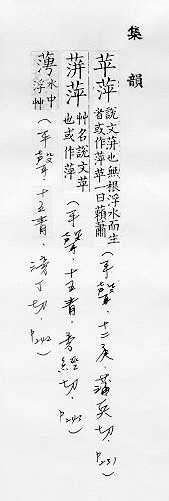 集韻
苹萍 說文蓱也無根浮水而生者或作萍苹一曰藾蕭(平聲.十二庚.蒲兵切.P.231)
蓱萍 艸名說文苹也或作萍(平聲.十五青.旁經切.P.243)
薸 水中浮艸(平聲.十五青.滂丁切.P.242)